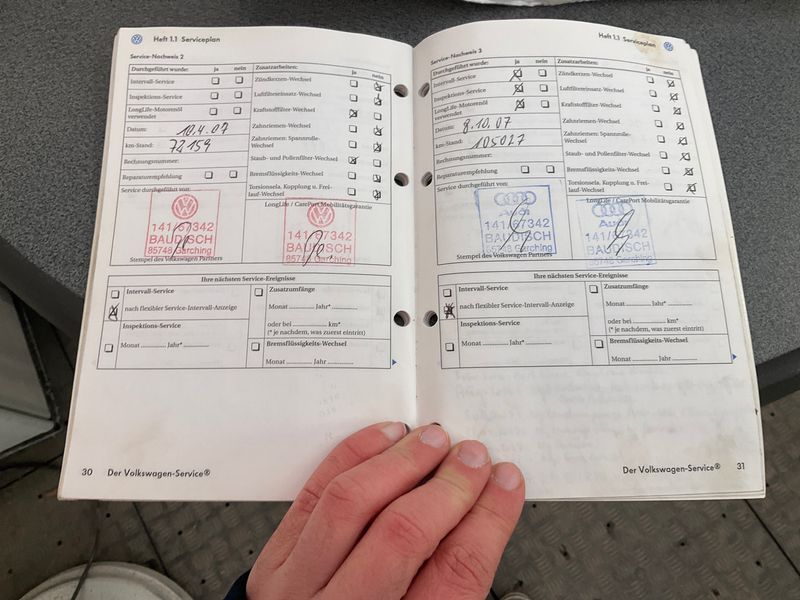 Heft 1.1 Serviceplan
Service-Nachweis 2
Durchgeführt wurde: ja nein
Intervall-Service
Inspektions-Service
LongLife-Motorenöl
verwendet
Datum: 10.4.07
km-Stand: 72159
Rechnungsnummer:
Reparaturempfehlung
Zusatzarbeiten: ja nein
Zündkerzen-Wechsel
Luftfiltereinsatz-Wechsel
Kraftstofffilter-Wechsel
Zahnriemen-Wechsel
Zahnriemen: Spannrolle-
Wechsel
Staub- und Pollenfilter-Wechsel
Bremsflüssigkeits-Wechsel
Torsionsela. Kupplung u. Frei-
lauf-Wechsel
Service durchgeführt von:
LongLife / CarePort Mobilitätsgarantie
141/67342
BAUDISCH
85748 Garching
141/67342
BAUDISCH
85748 Garching
Stempel des Volkswagen Partners
Ihre nächsten Service-Ereignisse
Intervall-Service
nach flexibler Service-Intervall-Anzeige
Inspektions-Service
Monat Jahr*
Zusatzumfänge
Monat Jahr*
oder bei km*
(* je nachdem, was zuerst eintritt)
Bremsflüssigkeits-Wechsel
Monat Jahr
30 Der Volkswagen-Service®
Heft 1.1 Serviceplan
Service-Nachweis 3
Durchgeführt wurde: ja nein
Intervall-Service
Inspektions-Service
LongLife-Motorenöl
verwendet
Datum: 8.10.07
km-Stand: 105027
Rechnungsnummer:
Reparaturempfehlung
Zusatzarbeiten: ja nein
Zündkerzen-Wechsel
Luftfiltereinsatz-Wechsel
Kraftstofffilter-Wechsel
Zahnriemen-Wechsel
Zahnriemen: Spannrolle-
Wechsel
Staub- und Pollenfilter-Wechsel
Bremsflüssigkeits-Wechsel
Torsionsela. Kupplung u. Frei-
lauf-Wechsel
Service durchgeführt von:
LongLife / CarePort Mobilitätsgarantie
Audi
141/67342
BAUDISCH
85748 Garching
Audi
141/67342
BAUDISCH
85748 Garching
Stempel des Volkswagen Partners
Ihre nächsten Service-Ereignisse
Intervall-Service
nach flexibler Service-Intervall-Anzeige
Inspektions-Service
Monat Jahr*
Zusatzumfänge
Monat Jahr*
oder bei km*
(* je nachdem, was zuerst eintritt)
Bremsflüssigkeits-Wechsel
Monat Jahr
Der Volkswagen-Service® 31